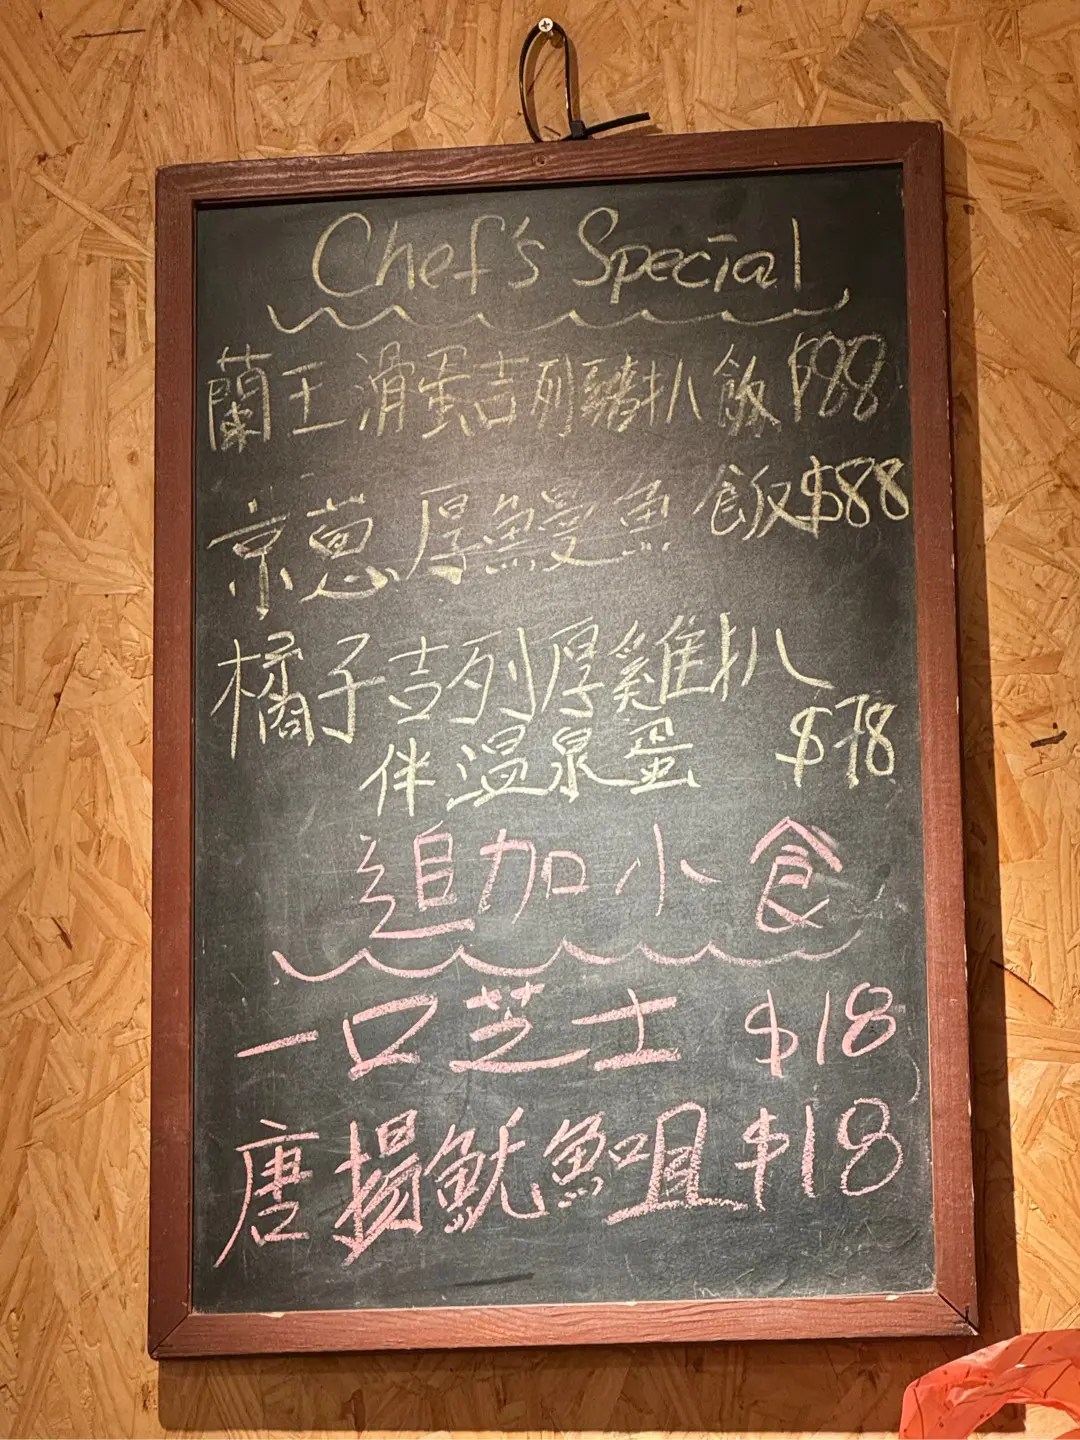 Chef's Special
蘭王滑蛋吉列豬扒飯 $88
京葱厚鰻魚飯 $88
橘子吉列厚雞扒
伴溫泉蛋 $78
追加小食
一口芝士 $18
唐揚魷魚咀 $18